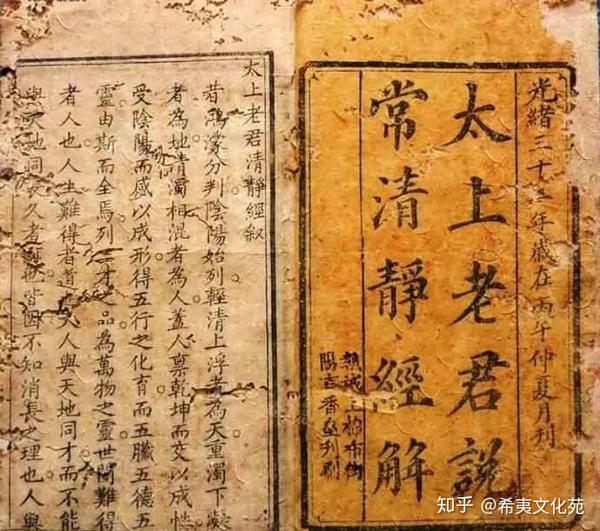 光緒三十二年歲在丙午仲夏月刊
太上老君說
常清靜經解
上棉布街
陽春香刊刷
太上老君清靜經叙
昔鴻濛分判陰陽始列輕清上浮者為天重濁下凝
者為地清濁相混者為人蓋人稟乾坤而交以成性
受陰陽而感以成形得五行之化育而五臟五德五
靈由斯而全焉列三才之品為萬物之靈世間難得
者人也人生難得者道也夫人與天地同才而不能
與天地同長久者何也皆因不知消長之理也人與
知乎 @希夷文化苑